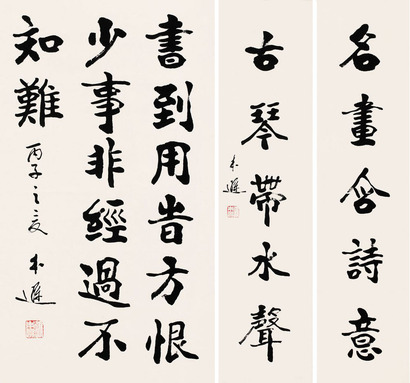 名畫含詩意
古琴帶水聲
書到用旹方恨
少事非經過不
知難
丙子之夏